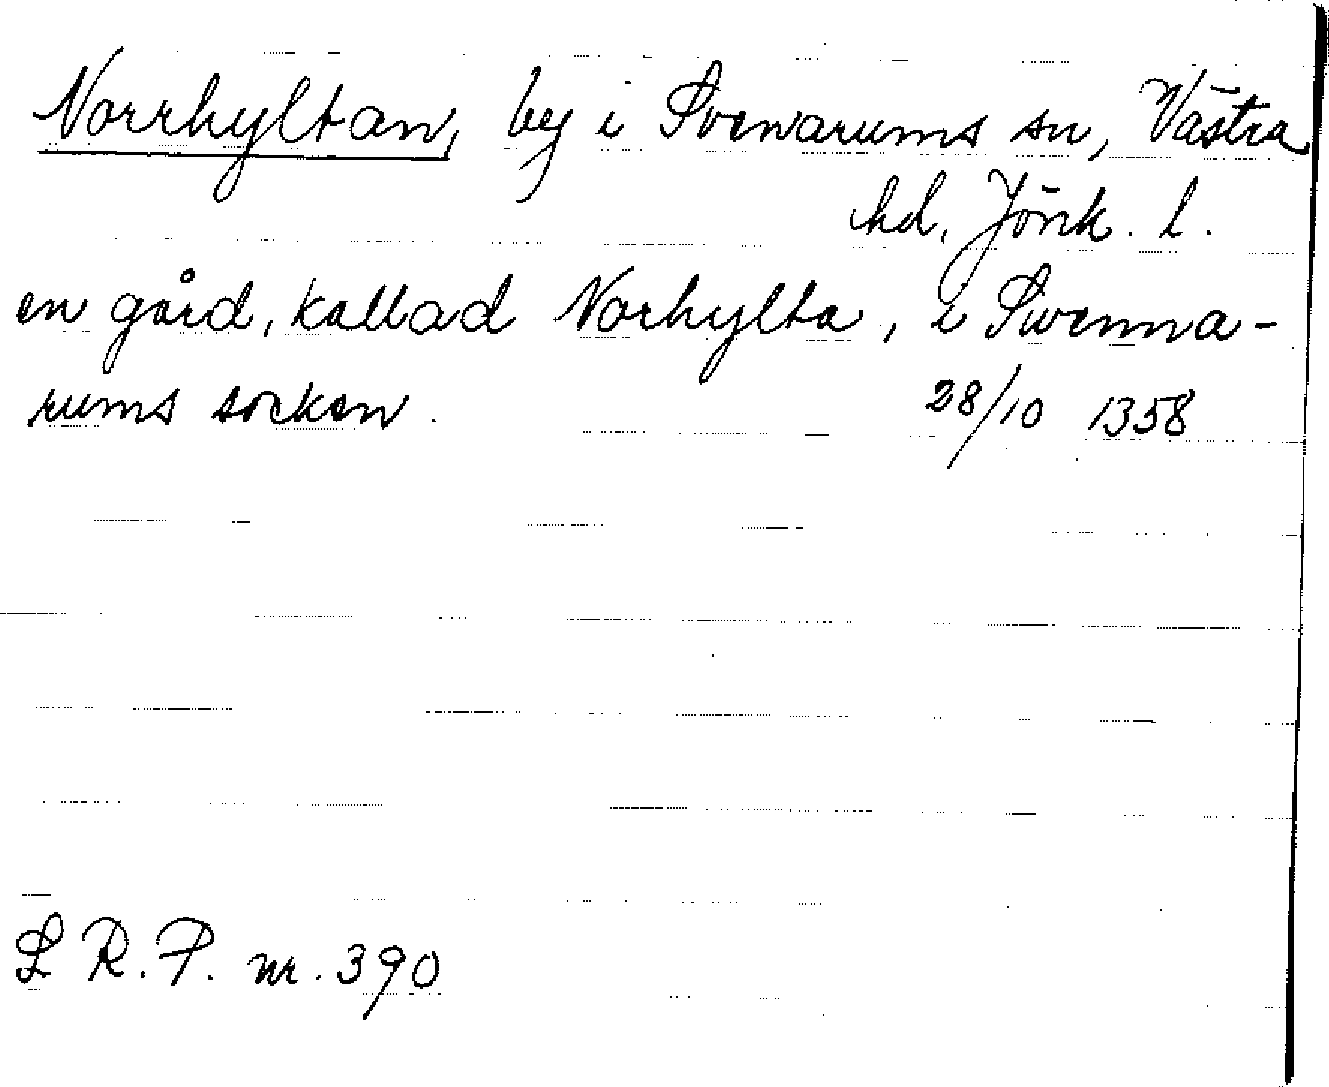 Norrhyltan, by i Svenarums sn, Västra
hd, Jönk. l.
en gård, kallad Norhylta, i Swenna-
rums socken. 28/10 1358
S R. P. nr. 390